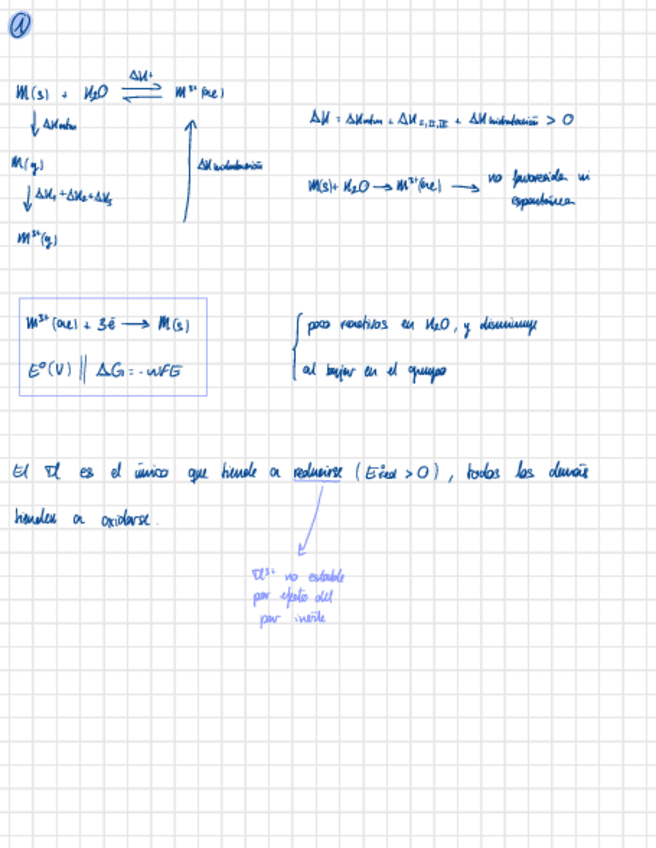 1
M(s) + H₂O ⇌ M³⁺(ac)
ΔH₁
↓ ΔHatm
M(g)
↓ ΔH₁ + ΔH₂ + ΔH₃
M³⁺(g)
ΔHhidratación
ΔH = ΔHatm + ΔH I,II,III + ΔHhidratación > 0
M(s) + H₂O → M³⁺(ac) → no favorecida ni
espontánea
M³⁺(ac) + 3ē → M(s)
E°(V) || ΔG = -nFE
poco reactivos en H₂O, y disminuye
al bajar en el grupo
El Tl es el único que tiende a reducirse (E°red > 0), todos los demás
tienden a oxidarse.
Tl³⁺ no estable
por efecto del
par inerte